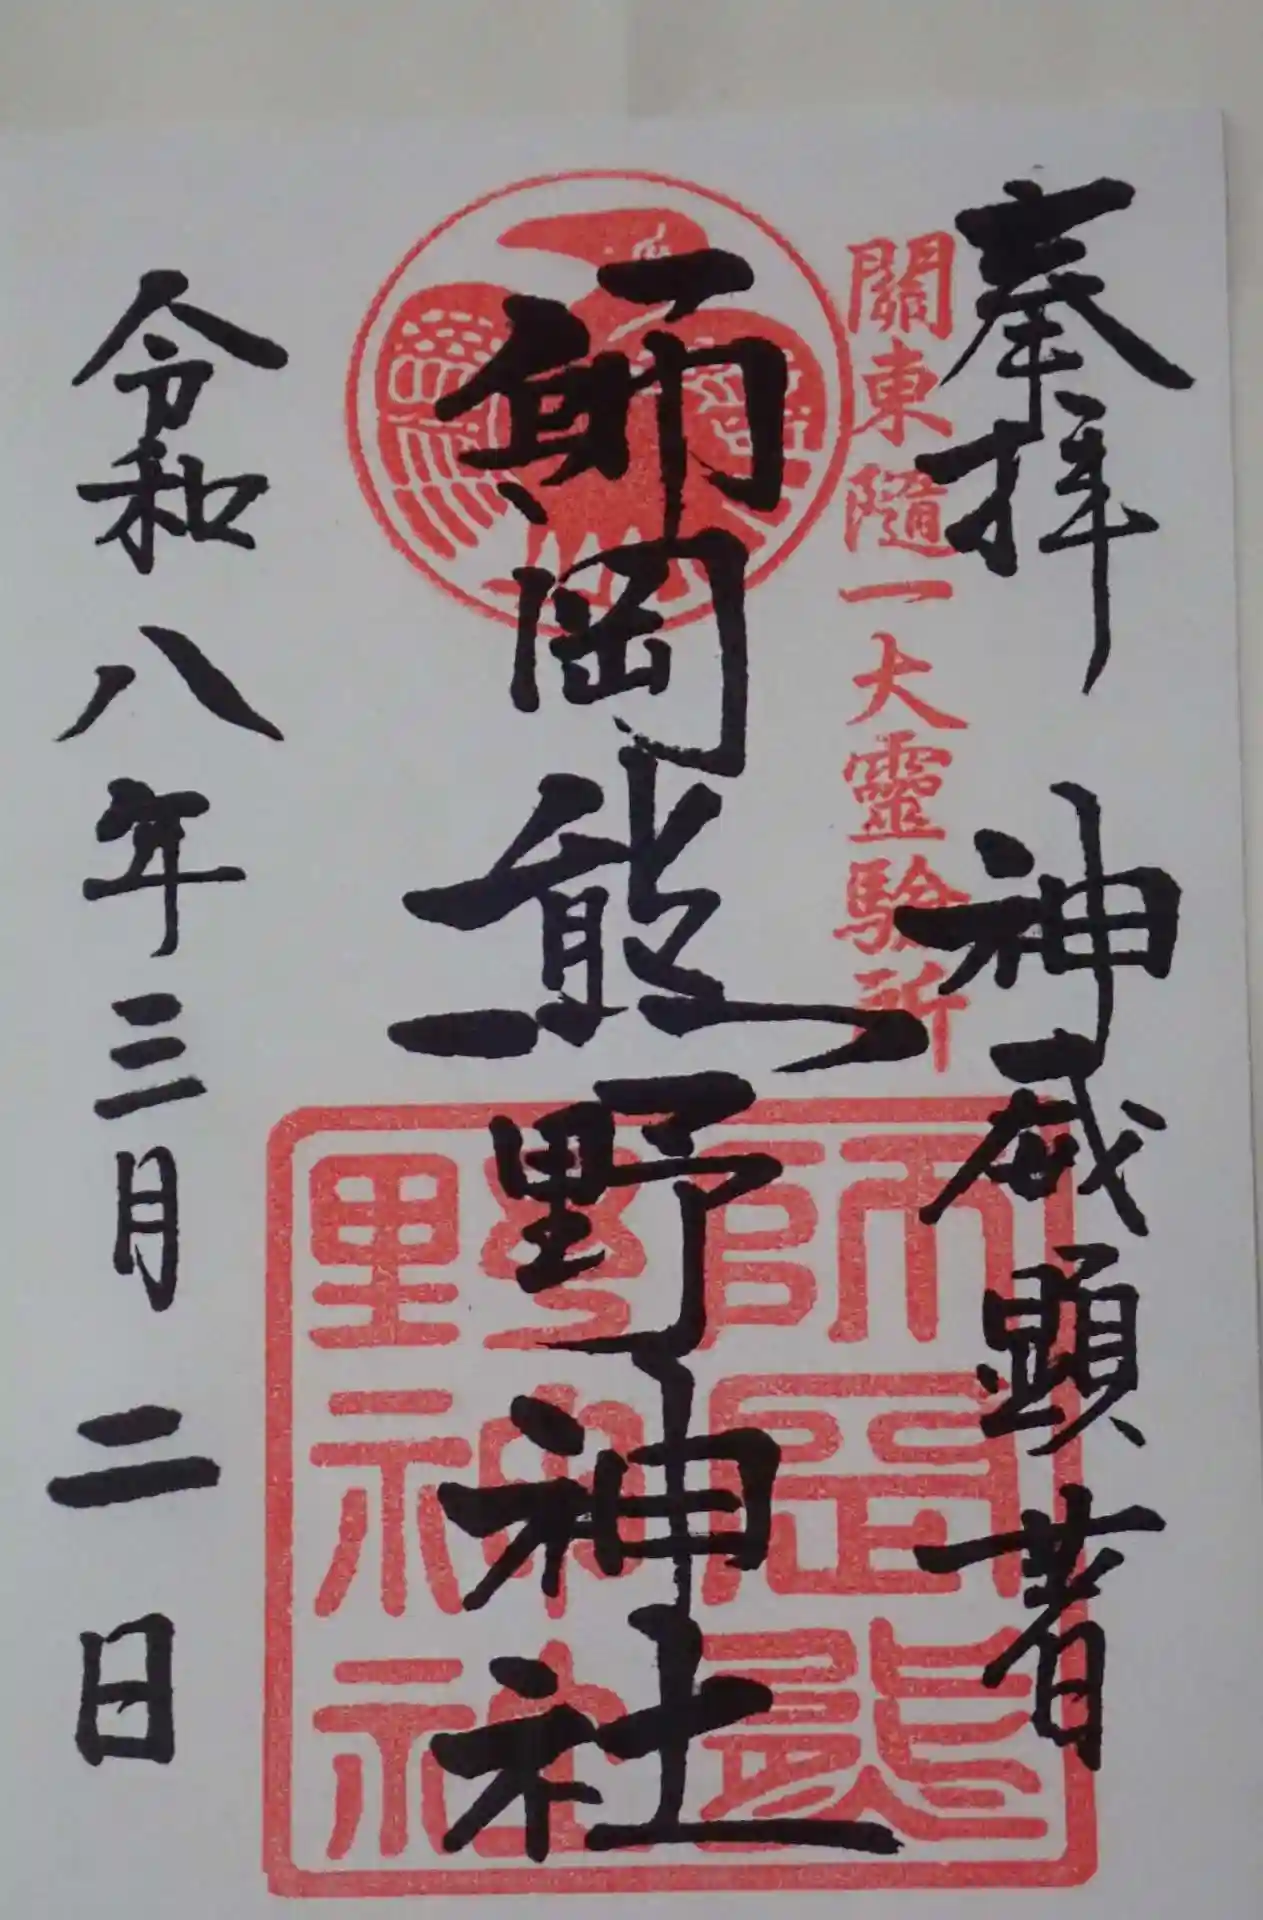 奉拝　神威顕著
關東隨一大靈驗所
師岡熊野神社
師岡熊野神社
令和八年三月二日